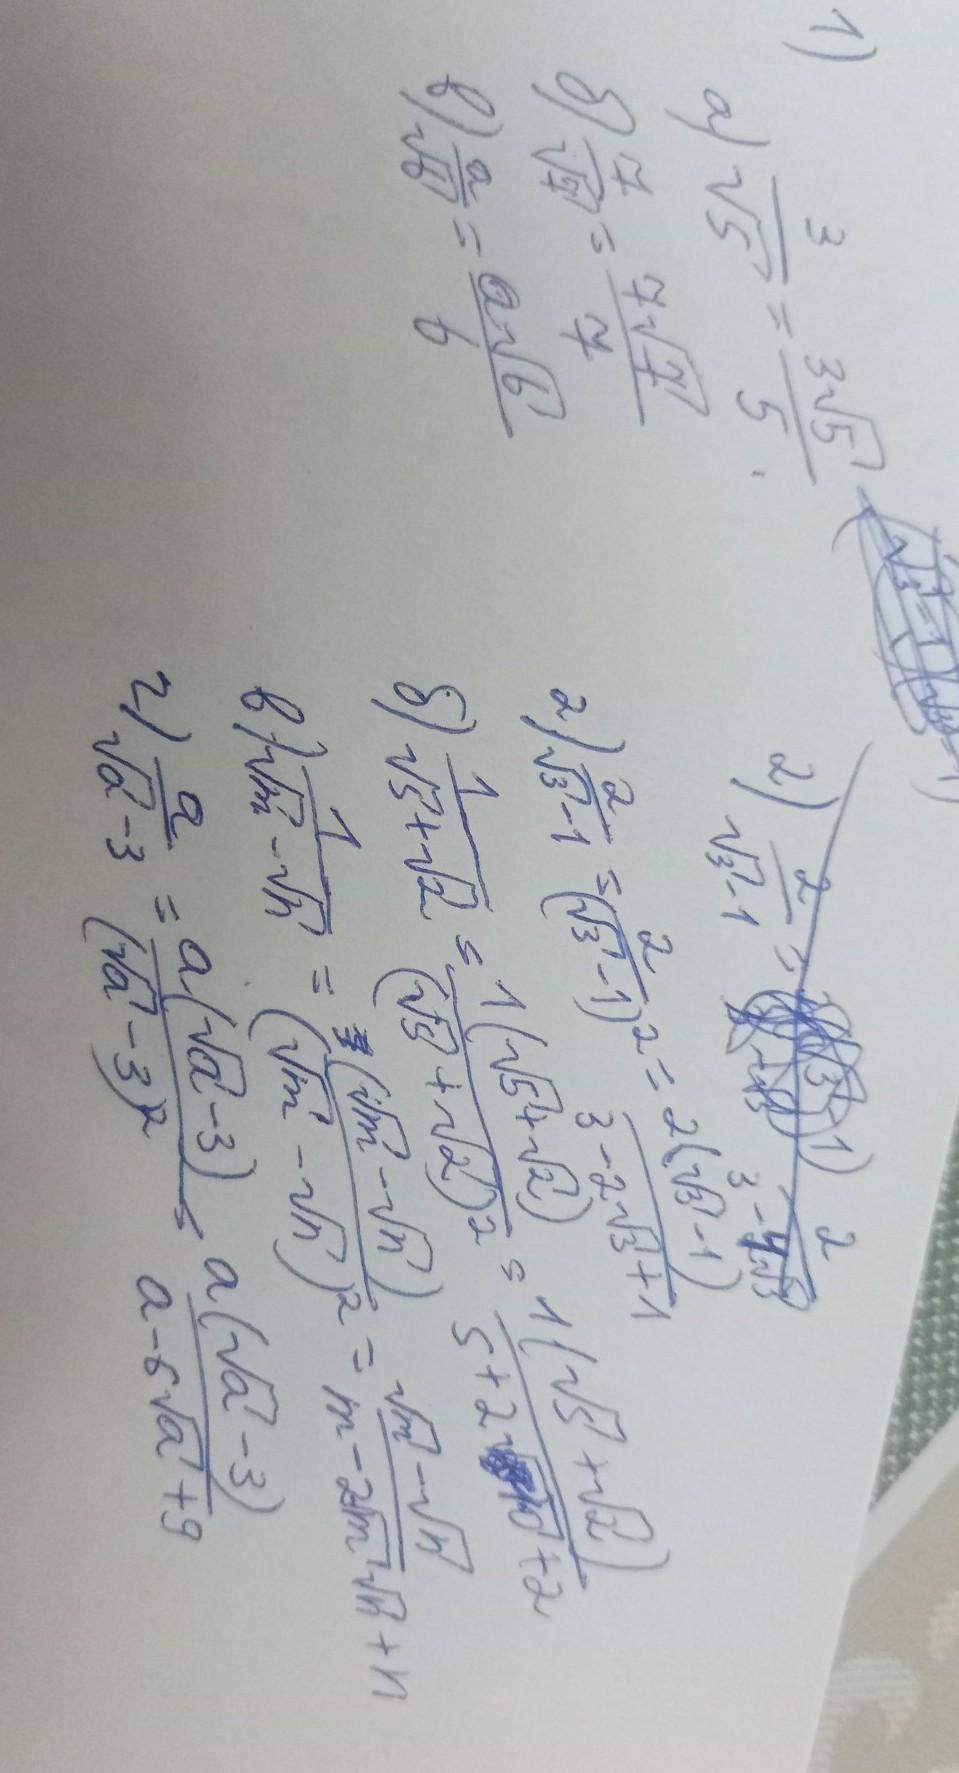 1)
а) 3/√5 = 3√5/5.
б) 7/√7 = 7√7/7
в) a/√b = a√b/b
2) 2/(√3-1) =
2) 2/(√3-1) = 2/(√3-1)² = 2(√3-1)/(3-2√3+1)
б) 1/(√5+√2) = 1(√5+√2)/(√5+√2)² = 1(√5+√2)/(5+2√10+2)
в) 1/(√m-√n) = (√m-√n)/(√m-√n)² = (√m-√n)/(m-2√m√n+n)
г) a/(√a-3) = a(√a-3)/(√a-3)² = a(√a-3)/(a-6√a+9)